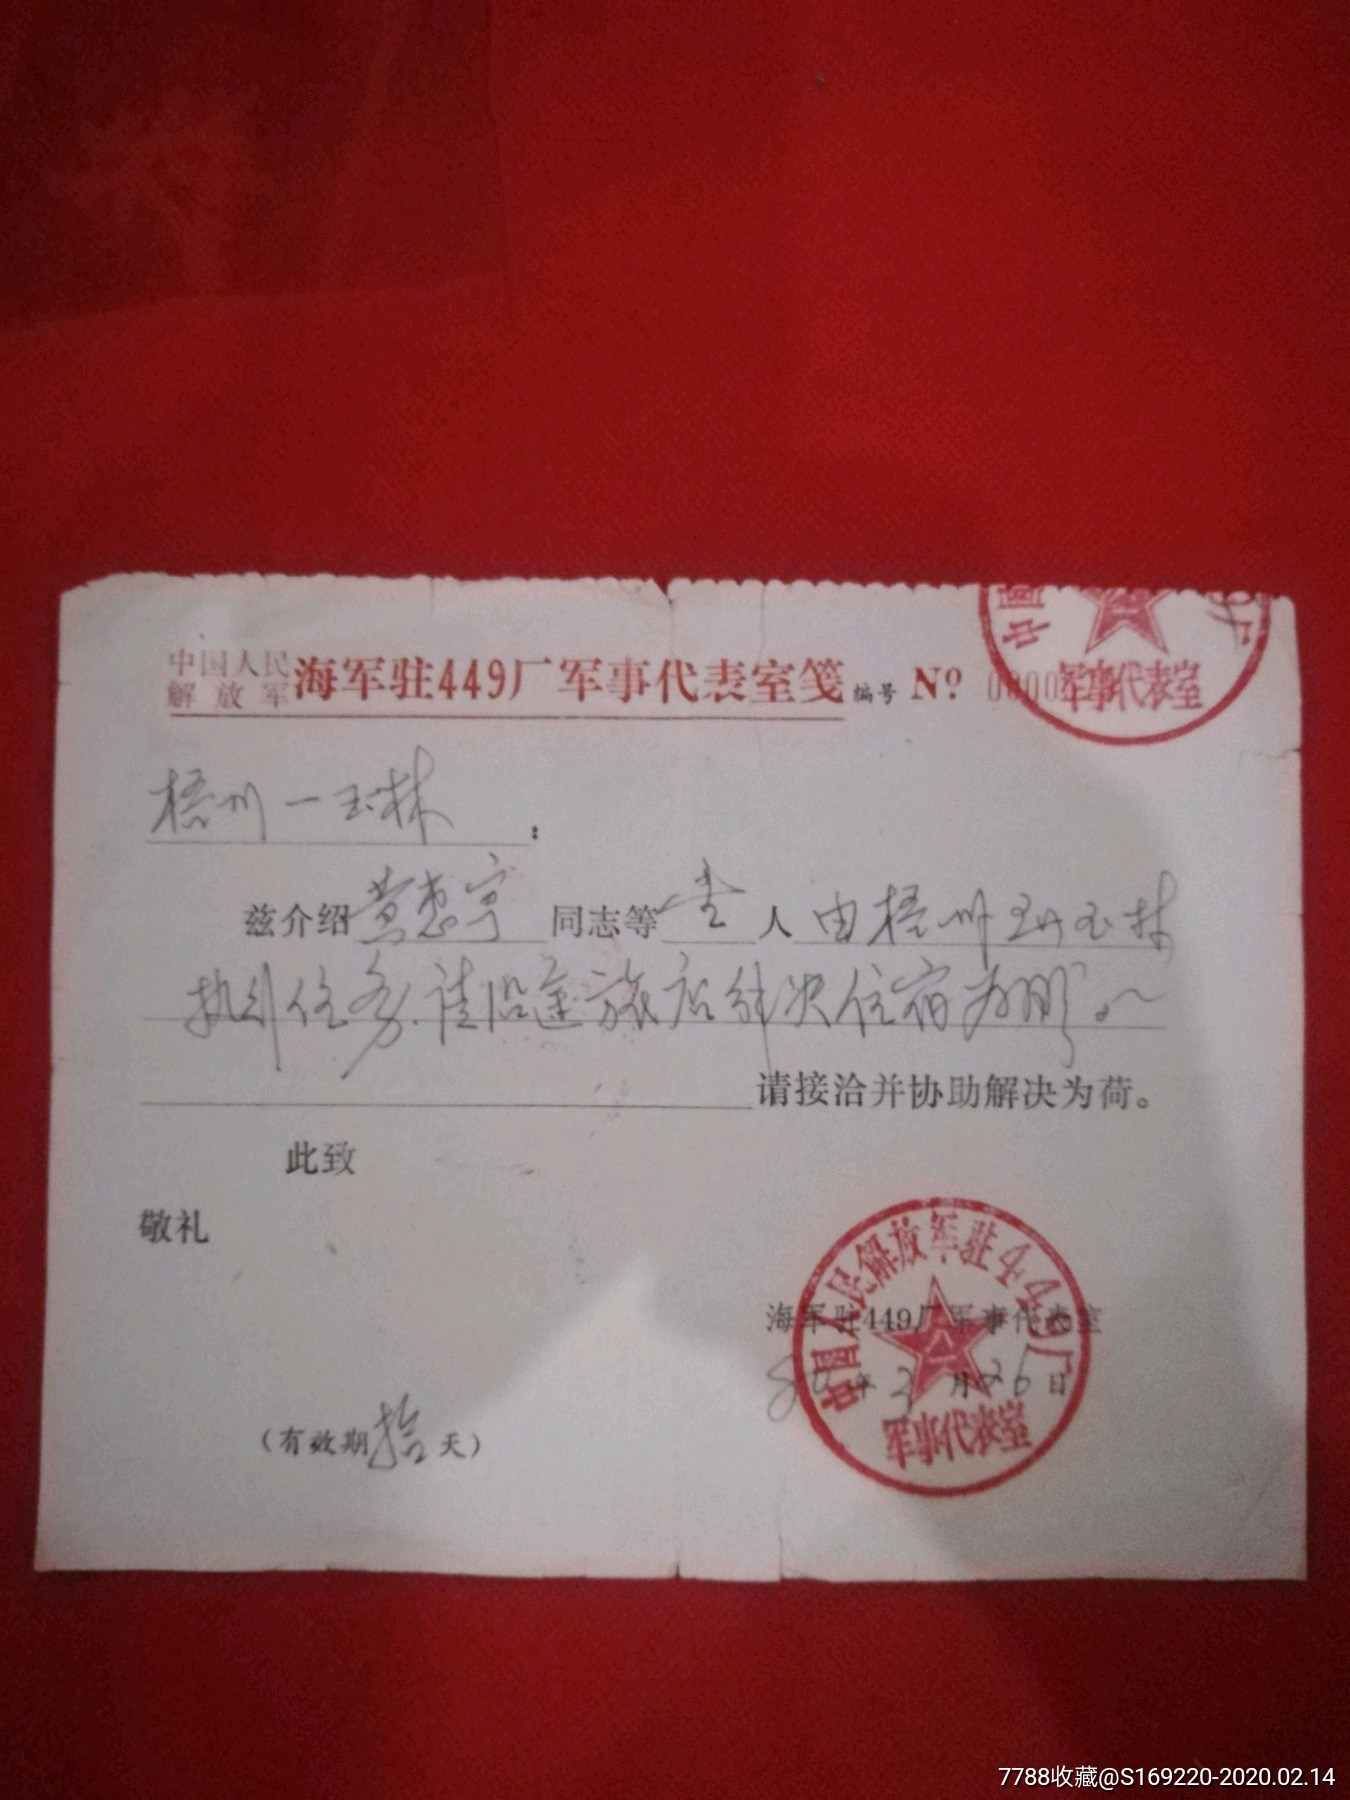 中国人民解放军海军驻449厂军事代表室笺 编号 Nº 0000
中国 厂
军事代表室
梧州—玉林:
兹介绍黄惠亨同志等壹人由梧州到玉林
执行任务.请沿途旅店解决住宿为盼。
请接洽并协助解决为荷。
此致
敬礼
中国人民解放军驻449厂
海军驻449厂军事代表室
80年3月26日
军事代表室
(有效期拾天)
7788收藏@S169220-2020.02.14